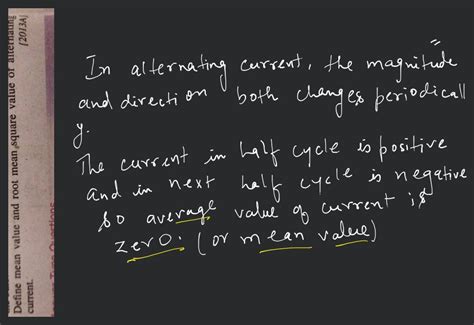 Define mean value and root mean square value of alternating
current.
[2013A]
In alternating current, the magnitude
and direction both changes periodicall
y.
The current in half cycle is positive
and in next half cycle is negative
so average value of current is
zero. (or mean value)